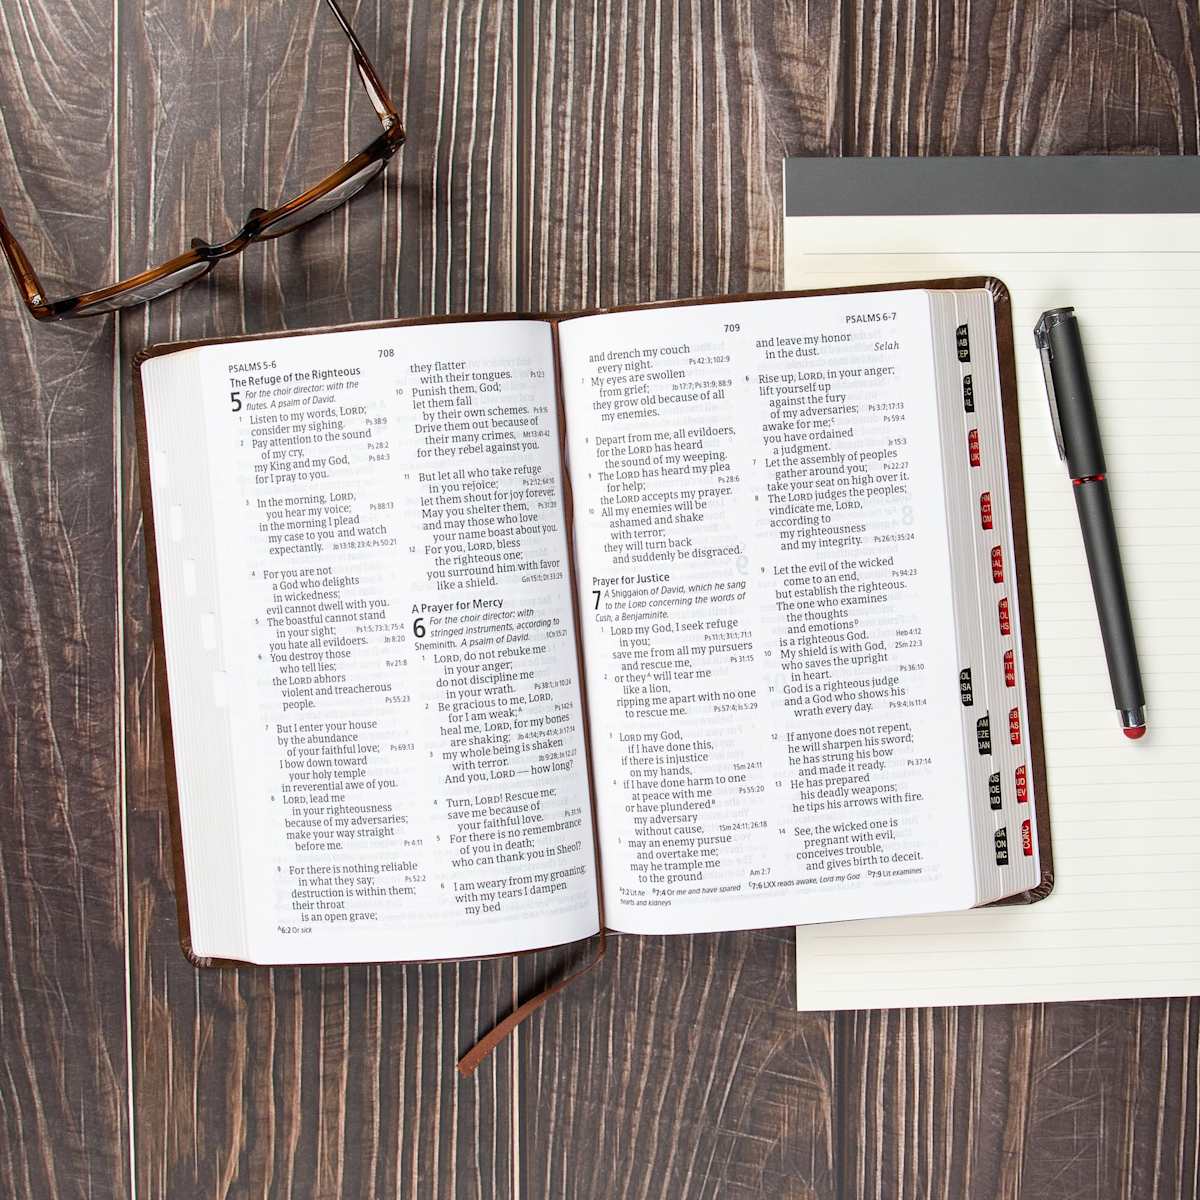 PSALMS 5-6
708
The Refuge of the Righteous
5 For the choir director: with the
flutes. A psalm of David.
1 Listen to my words, LORD;
consider my sighing. Ps 38:9
2 Pay attention to the sound
of my cry, Ps 28:2
my King and my God, Ps 84:3
for I pray to you.
3 In the morning, LORD,
you hear my voice; Ps 88:13
in the morning I plead
my case to you and watch
expectantly. Jb 13:18; 23:4; Ps 50:21
4 For you are not
a God who delights
in wickedness;
evil cannot dwell with you.
5 The boastful cannot stand
in your sight; Ps 1:5; 73:3; 75:4
you hate all evildoers. Jn 8:20
6 You destroy those
who tell lies; Rv 21:8
the LORD abhors
violent and treacherous
people. Ps 55:23
7 But I enter your house
by the abundance
of your faithful love; Ps 69:13
I bow down toward
your holy temple
in reverential awe of you.
8 LORD, lead me
in your righteousness
because of my adversaries;
make your way straight
before me. Ps 4:11
9 For there is nothing reliable
in what they say; Ps 52:2
destruction is within them;
their throat
is an open grave;
A6:2 Or sick
they flatter
with their tongues. Ps 12:3
10 Punish them, God;
let them fall
by their own schemes. Ps 9:16
Drive them out because of
their many crimes, Mt 13:41-42
for they rebel against you.
11 But let all who take refuge
in you rejoice; Ps 2:12; 64:10
let them shout for joy forever.
May you shelter them, Ps 31:20
and may those who love
your name boast about you.
12 For you, LORD, bless
the righteous one;
you surround him with favor
like a shield. Gn 15:1; Dt 33:29
A Prayer for Mercy
6 For the choir director: with
stringed instruments, according to
Sheminith. A psalm of David. 1Ch 15:21
1 LORD, do not rebuke me
in your anger;
do not discipline me
in your wrath. Ps 38:1; Jr 10:24
2 Be gracious to me, LORD,
for I am weak;A
heal me, LORD, for my bones
are shaking; Jb 4:14; Ps 41:4; Jr 17:14
3 my whole being is shaken
with terror. Jb 9:28; Jn 12:27
And you, LORD — how long?
4 Turn, LORD! Rescue me;
save me because of
your faithful love. Ps 31:16
5 For there is no remembrance
of you in death;
who can thank you in Sheol?
6 I am weary from my groaning;
with my tears I dampen
my bed
709
PSALMS 6-7
and drench my couch
every night. Ps 42:3; 102:9
7 My eyes are swollen
from grief; Jb 17:7; Ps 31:9; 88:9
they grow old because of all
my enemies.
8 Depart from me, all evildoers,
for the LORD has heard
the sound of my weeping.
9 The LORD has heard my plea
for help; Ps 28:6
the LORD accepts my prayer.
10 All my enemies will be
ashamed and shake
with terror;
they will turn back
and suddenly be disgraced.
Prayer for Justice
7 A Shiggaion of David, which he sang
to the LORD concerning the words of
Cush, a Benjaminite.
1 LORD my God, I seek refuge
in you; Ps 11:1; 31:1; 71:1
save me from all my pursuers
and rescue me, Ps 31:15
2 or theyA will tear me
like a lion,
ripping me apart with no one
to rescue me. Ps 57:4; Is 5:29
3 LORD my God,
if I have done this,
if there is injustice
on my hands, 1Sm 24:11
4 if I have done harm to one
at peace with me Ps 55:20
or have plunderedB
my adversary
without cause, 1Sm 24:11; 26:18
5 may an enemy pursue
and overtake me;
may he trample me
to the ground Am 2:7
and leave my honor
in the dust. Selah
6 Rise up, LORD, in your anger;
lift yourself up
against the fury
of my adversaries; Ps 3:7; 17:13
awake for me;C Ps 59:4
you have ordained
a judgment. Jr 15:3
7 Let the assembly of peoples
gather around you; Ps 22:27
take your seat on high over it.
8 The LORD judges the peoples;
vindicate me, LORD,
according to
my righteousness
and my integrity. Ps 26:1; 35:24
9 Let the evil of the wicked
come to an end, Ps 94:23
but establish the righteous.
The one who examines
the thoughts
and emotionsD
is a righteous God. Heb 4:12
10 My shield is with God, 2Sm 22:3
who saves the upright
in heart. Ps 36:10
11 God is a righteous judge
and a God who shows his
wrath every day. Ps 9:4; Is 11:4
12 If anyone does not repent,
he will sharpen his sword;
he has strung his bow
and made it ready. Ps 37:14
13 He has prepared
his deadly weapons;
he tips his arrows with fire.
14 See, the wicked one is
pregnant with evil,
conceives trouble,
and gives birth to deceit.
A7:2 Lit he B7:4 Or me and have spared C7:6 LXX reads awake, Lord my God D7:9 Lit examines
hearts and kidneys
CONC